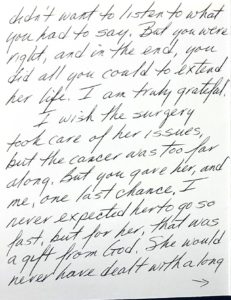 didn't want to listen to what
you had to say. But you were
right, and in the end, you
did all you could to extend
her life. I am truly grateful.
I wish the surgery
took care of her issues,
but the cancer was too far
along. But you gave her, and
me, one last chance. I
never expected her to go so
fast, but for her, that was
a gift from God. She would
never have dealt with a long
→